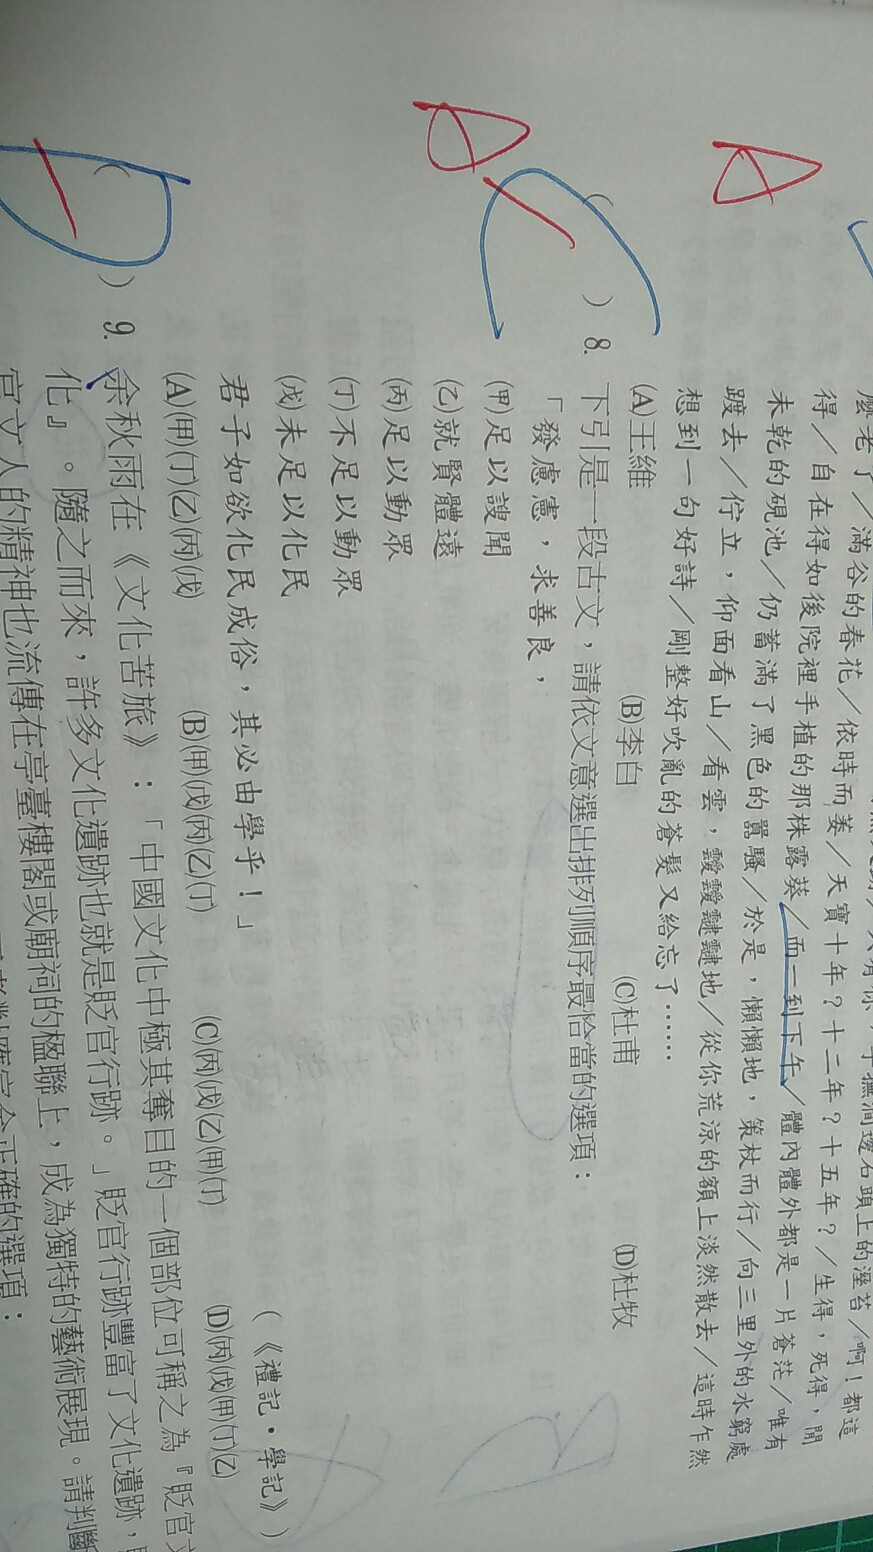 麼老了／滿谷的春花／依時而萎／天寶十年？十二年？十五年？／生得，死得，閒
得／自在得如後院裡手植的那株露葵／而一到下午／體內體外都是一片蒼茫／唯有
未乾的硯池／仍蓄滿了黑色的囂騷／於是，懶懶地，策杖而行／向三里外的水窮處
踱去／佇立，仰面看山／看雲，靉靉靆靆地／從你荒涼的額上淡然散去／這時乍然
想到一句好詩／剛整好吹亂的蒼髮又給忘了……
A
(A)王維 (B)李白 (C)杜甫 (D)杜牧
A C
( ) 8. 下引是一段古文，請依文意選出排列順序最恰當的選項：
「發慮憲，求善良，
(甲)足以謏聞
(乙)就賢體遠
(丙)足以動眾
(丁)不足以動眾
(戊)未足以化民
君子如欲化民成俗，其必由學乎！」（《禮記．學記》）
(A)(甲)(丁)(乙)(丙)(戊) (B)(甲)(戊)(丙)(乙)(丁) (C)(丙)(戊)(乙)(甲)(丁) (D)(丙)(戊)(甲)(丁)(乙)
D
( ) 9. 余秋雨在《文化苦旅》：「中國文化中極其奪目的一個部位可稱之為『貶官文
化』。隨之而來，許多文化遺跡也就是貶官行跡。」貶官行跡豐富了文化遺跡，
官文人的精神也流傳在亭臺樓閣或廟祠的楹聯上，成為獨特的藝術展現。請判斷
正確的選項：